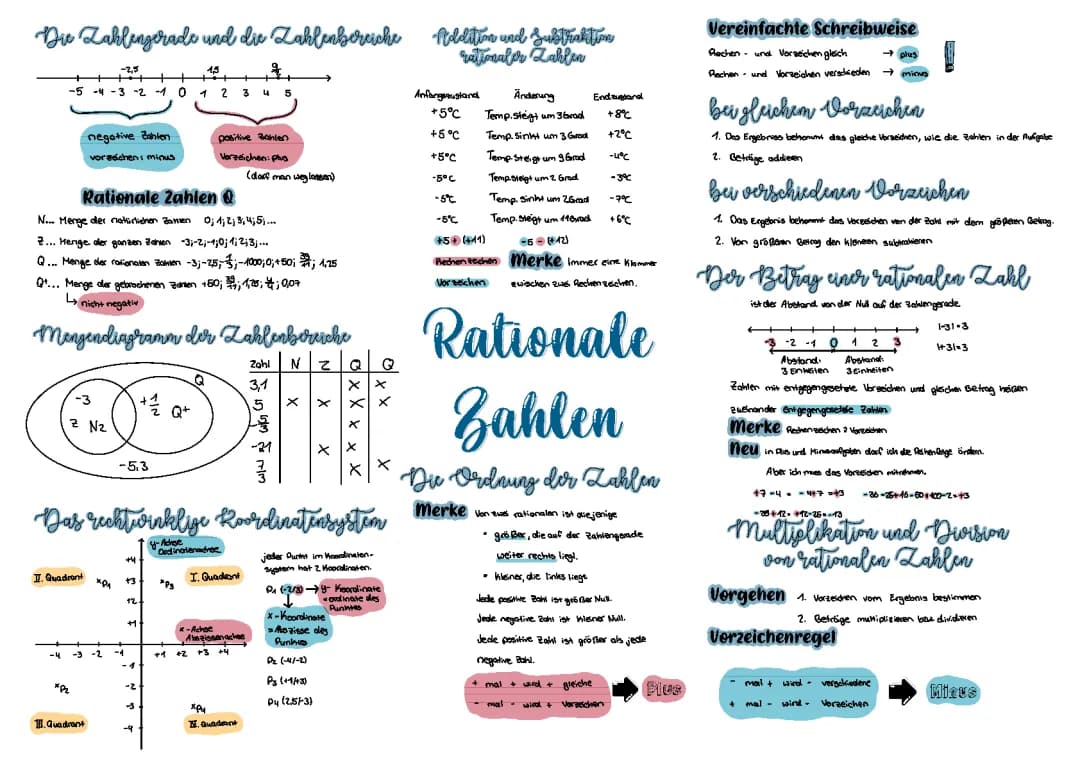 Die Zahlengerade und die Zahlenbereiche
-2,5 1,5
-5 -4 -3 -2 -1 0 1 2 3 4 5
negative Zahlen
vorzeichen: minus
positive Zahlen
Vorzeichen: plus
(darf man weglassen)
Rationale Zahlen Q
N... Menge der natürlichen Zahlen 0; 1; 2; 3; 4; 5; ...
Z... Menge der ganzen Zahlen -3; -2; -1; 0; 1; 2; 3; ...
Q... Menge der rationalen Zahlen
Q+... Menge der gebrochenen Zahlen
nicht negativ
Mengendiagramm der Zahlenbereiche
Q
-3
+1/2
Q+
Z N2
-5,3
Zahl N Z Q Q
3,1 x x
5 x x x x
-5/3 x
-21 x x
7/3 x x
Das rechtwinklige Koordinatensystem
y-Achse
Ordinatenachse
II. Quadrant
xP1
xP3
I. Quadrant
+4
+3
+2
+1
x-Achse
Abszissenachse
-4 -3 -2 -1 +1 +2 +3 +4
-1
-2
-3
-4
xP2
xP4
III. Quadrant
IV. Quadrant
jeder Punkt im Koordinaten-
system hat 2 Koordinaten.
P1 (-2/3) → y-Koordinate
=ordinate des
Punktes
x-Koordinate
=Abszisse des
Punktes
P2 (-4/-2)
P3 (+1/+3)
P4 (2,5/-3)
Addition und Subtraktion
rationaler Zahlen
Anfangszustand Änderung Endzustand
+5°C Temp. steigt um 3 Grad +8°C
+5°C Temp. sinkt um 3 Grad +2°C
+5°C Temp. steigt um 9 Grad -4°C
-5°C Temp. steigt um 2 Grad -3°C
-5°C Temp. sinkt um 2 Grad -7°C
-5°C Temp. steigt um 11 Grad +6°C
+5 + (+11) -5 - (+12)
Rechenzeichen
Vorzeichen
Merke immer eine Klammer
zwischen zwei Rechenzeichen.
Rationale
Zahlen
Die Ordnung der Zahlen
Merke Von zwei rationalen ist diejenige
• größer, die auf der Zahlengerade
weiter rechts liegt.
• kleiner, die links liegt
Jede positive Zahl ist größer Null.
Jede negative Zahl ist kleiner Null.
Jede positive Zahl ist größer als jede
negative Zahl.
+ mal + wird + gleiche
- mal - wird + Vorzeichen
Plus
Vereinfachte Schreibweise
Rechen - und Vorzeichen gleich → plus
Rechen - und Vorzeichen verschieden → minus
!
bei gleichem Vorzeichen
1. Das Ergebniss bekommt das gleiche Vorzeichen, wie die Zahlen in der Aufgabe
2. Beträge addieren
bei verschiedenen Vorzeichen
1. Das Ergebnis bekommt das Vorzeichen von der Zahl mit dem größeren Betrag.
2. Von größeren Betrag den kleineren subtrahieren
Der Betrag einer rationalen Zahl
ist der Abstand von der Null auf der Zahlengerade.
-3 -2 -1 0 1 2 3
Abstand:
3 Einheiten
Abstand:
3 Einheiten
|-3|=3
|+3|=3
Zahlen mit entgegengesetzte Vorzeichen und gleichen Betrag heißen
zueinander entgegengesetzte Zahlen
Merke Rechenzeichen 2 Vorzeichen
Neu in Plus und Minusaufgaben darf ich die Reihenfolge ändern.
Aber ich muss das Vorzeichen mitnehmen.
+7 -4 = -4+7 = +3
Multiplikation und Division
von rationalen Zahlen
Vorgehen 1. Vorzeichen vom Ergebnis bestimmen
2. Beträge multiplizieren bzw. dividieren
Vorzeichenregel
- mal + wird - verschiedene
+ mal - wird - Vorzeichen
Minus